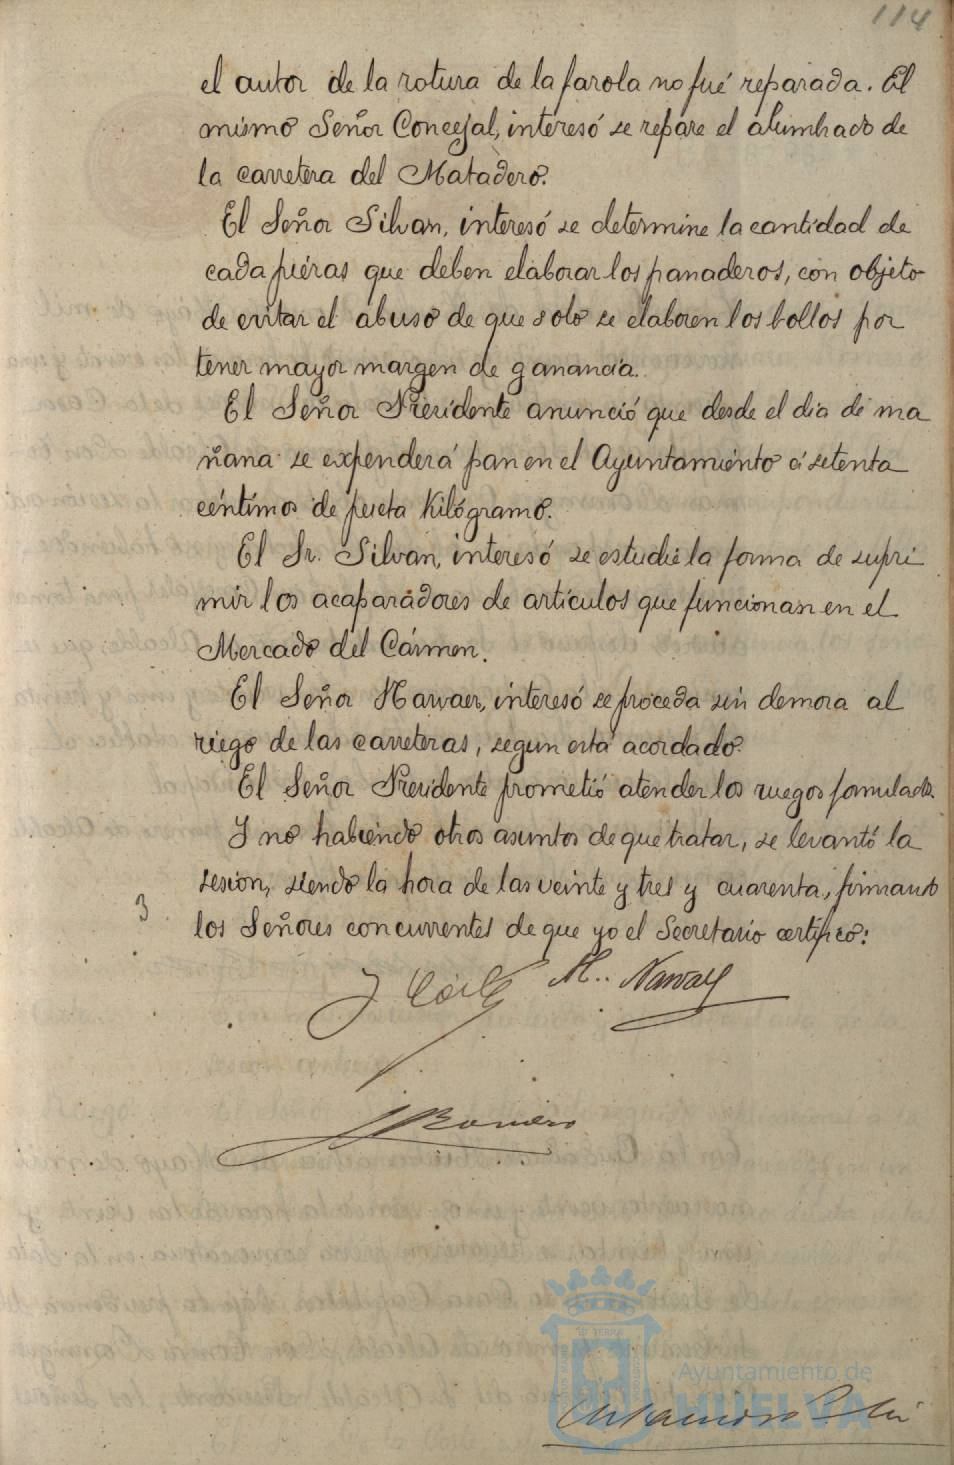 114
el autor de la rotura de la farola no fué reparada. El
mismo Señor Concejal, interesó se repare el alumbrado de
la carretera del Matadero.
El Señor Silvan, interesó se determine la cantidad de
cada piéras que deben elaborar los panaderos, con objeto
de evitar el abuso de que solo se elaboren los bollos por
tener mayor margen de ganancia.
El Señor Presidente anunció que desde el dia de ma
ñana se expenderá pan en el Ayuntamiento á setenta
céntimos de peseta Kilógramo.
El Sr. Silvan, interesó se estudie la forma de supri
mir los acaparadores de artículos que funcionan en el
Mercado del Cármen.
El Señor Narvaez, interesó se proceda sin demora al
riego de las carreteras, segun está acordado.
El Señor Presidente prometió atender los ruegos formulados.
Y no habiendo otros asuntos de que tratar, se levantó la
sesion, siendo la hora de las veinte y tres y cuarenta, firmando
los Señores concurrentes de que yo el Secretario certifico:
3
M. Narvaez
J Romero
Ayuntamiento de
HUELVA